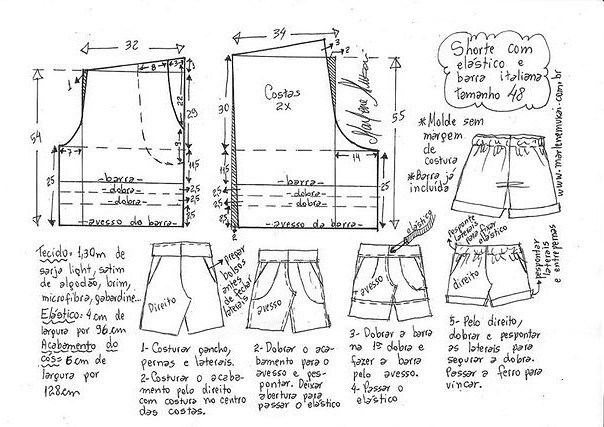 32
34
3
2
8
3
1
22
29
9
54
7
25
11,5
2,5
2,5
barra
dobra
dobra
avesso do barra
Costas
2X
30
55
11,5
2,5
2,5
14
25
25
barra
dobra
dobra
avesso da barra
2
Marlene Mukai
Shorte com
elástico e
barra italiana
tamanho 48
*Molde sem
margem
de
costura
*Barra já
incluída
www.marlenemukai.com.br
Tecido: 1,30m de
sarja light, satim
de algodão, brim,
microfibra, gabardine...
Elástico: 4cm de
largura por 96cm
Acabamento do
cós= 6cm de
largura por
128cm
Direito
pregar
bolsos
antes
de fechar
laterais
avesso
elástico
avesso
Pesponte
laterais
para fixar
elástico
direito
respontar
laterais
e entrepernas
1- Costurar gancho,
pernas e laterais.
2- Costurar o acaba-
mento pelo direito
com costura no centro
das costas.
2- Dobrar o aca-
bamento para o
avesso e pes-
pontar. Deixar
abertura para
passar o elástico
3- Dobrar a barra
na 1ª dobra e
fazer a barra
pelo avesso.
4- Passar o
elástico
5- Pelo direito,
dobrar e pespontar
as laterais para
segurar a dobra.
Passar a ferro para
vincar.